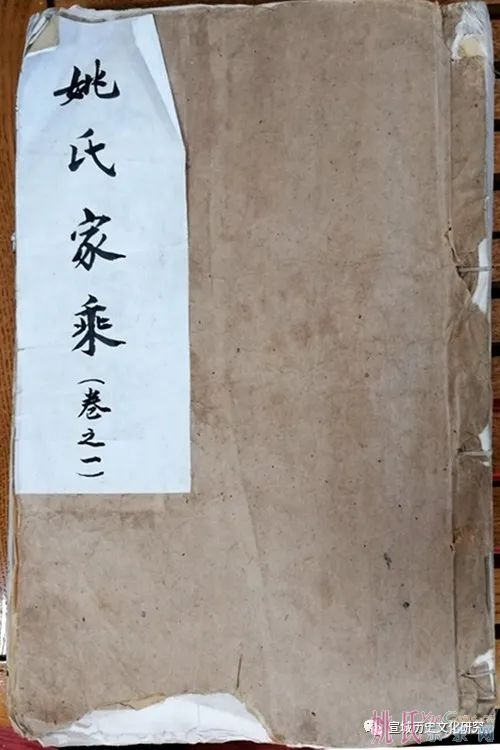 姚氏家乘(卷之一)
宣城历史文化研究
姚氏